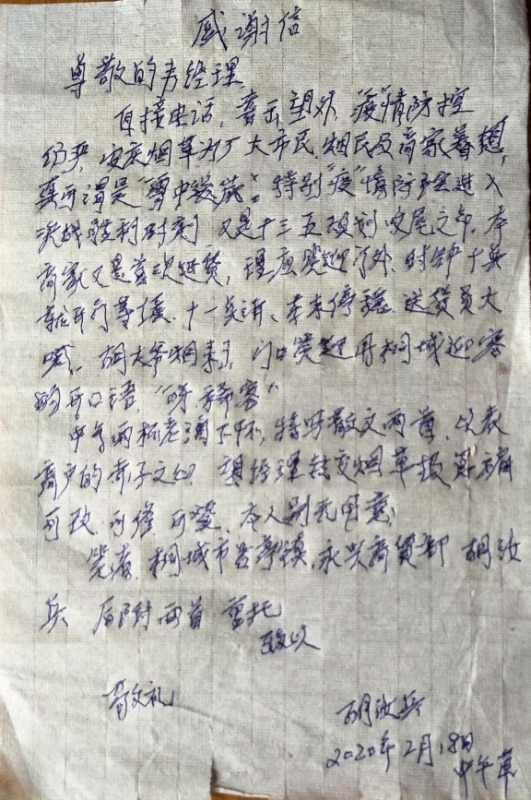 感谢信
尊敬的韦经理
自接电话,喜出望外,疫情防控
仍严,安庆烟草为广大市民,烟民及商家着想,
真可谓是"雪中送炭"。特别"疫"情防控进入
决战胜利时刻 又是十三五规划 收尾之年,本
商家又是首次延货,理应笑迎门外,时钟十点
就开门等候,十一点许,车未停稳 送货员大
喊,胡大爷烟来了,门口笑迎用桐城迎客
的开口语,"呀 稀客"
中午两杯老酒下怀,特呀散文两首,以表
商户的赤子之心 望经理转交烟草报 如不确
可改,可修,可登,本人别无用意!
笔者,桐城市吕亭镇,永兴商贸部 胡汝
兵 后附两首 重托
致以
敬礼
胡汝兵
2020年2月18日
中午草